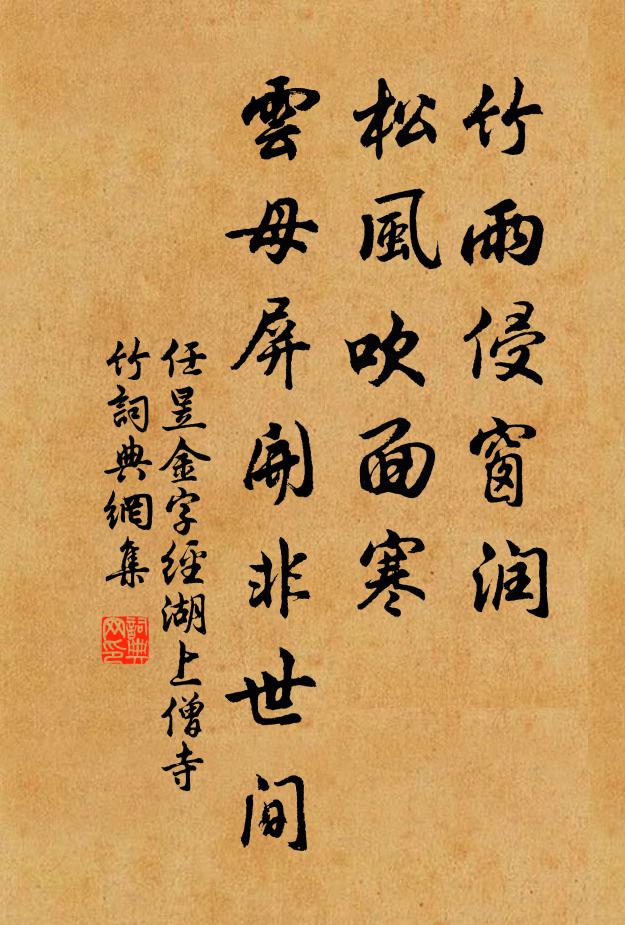 竹雨侵窗润
松風吹面寒
雲母屏開非世间
任昱金字经湖上僧寺
竹詞典網集
詞典
网印